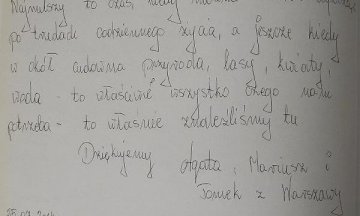 Najmilszy to czas, kiedy można
po trudach codziennego życia, a jeszcze kiedy
w okół cudowna przyroda, lasy, kwiaty,
woda - to właściwie wszystko czego nam
potrzeba - to właśnie znaleźliśmy tu
Dziękujemy Agata, Mariusz i
Tomek z Warszawy